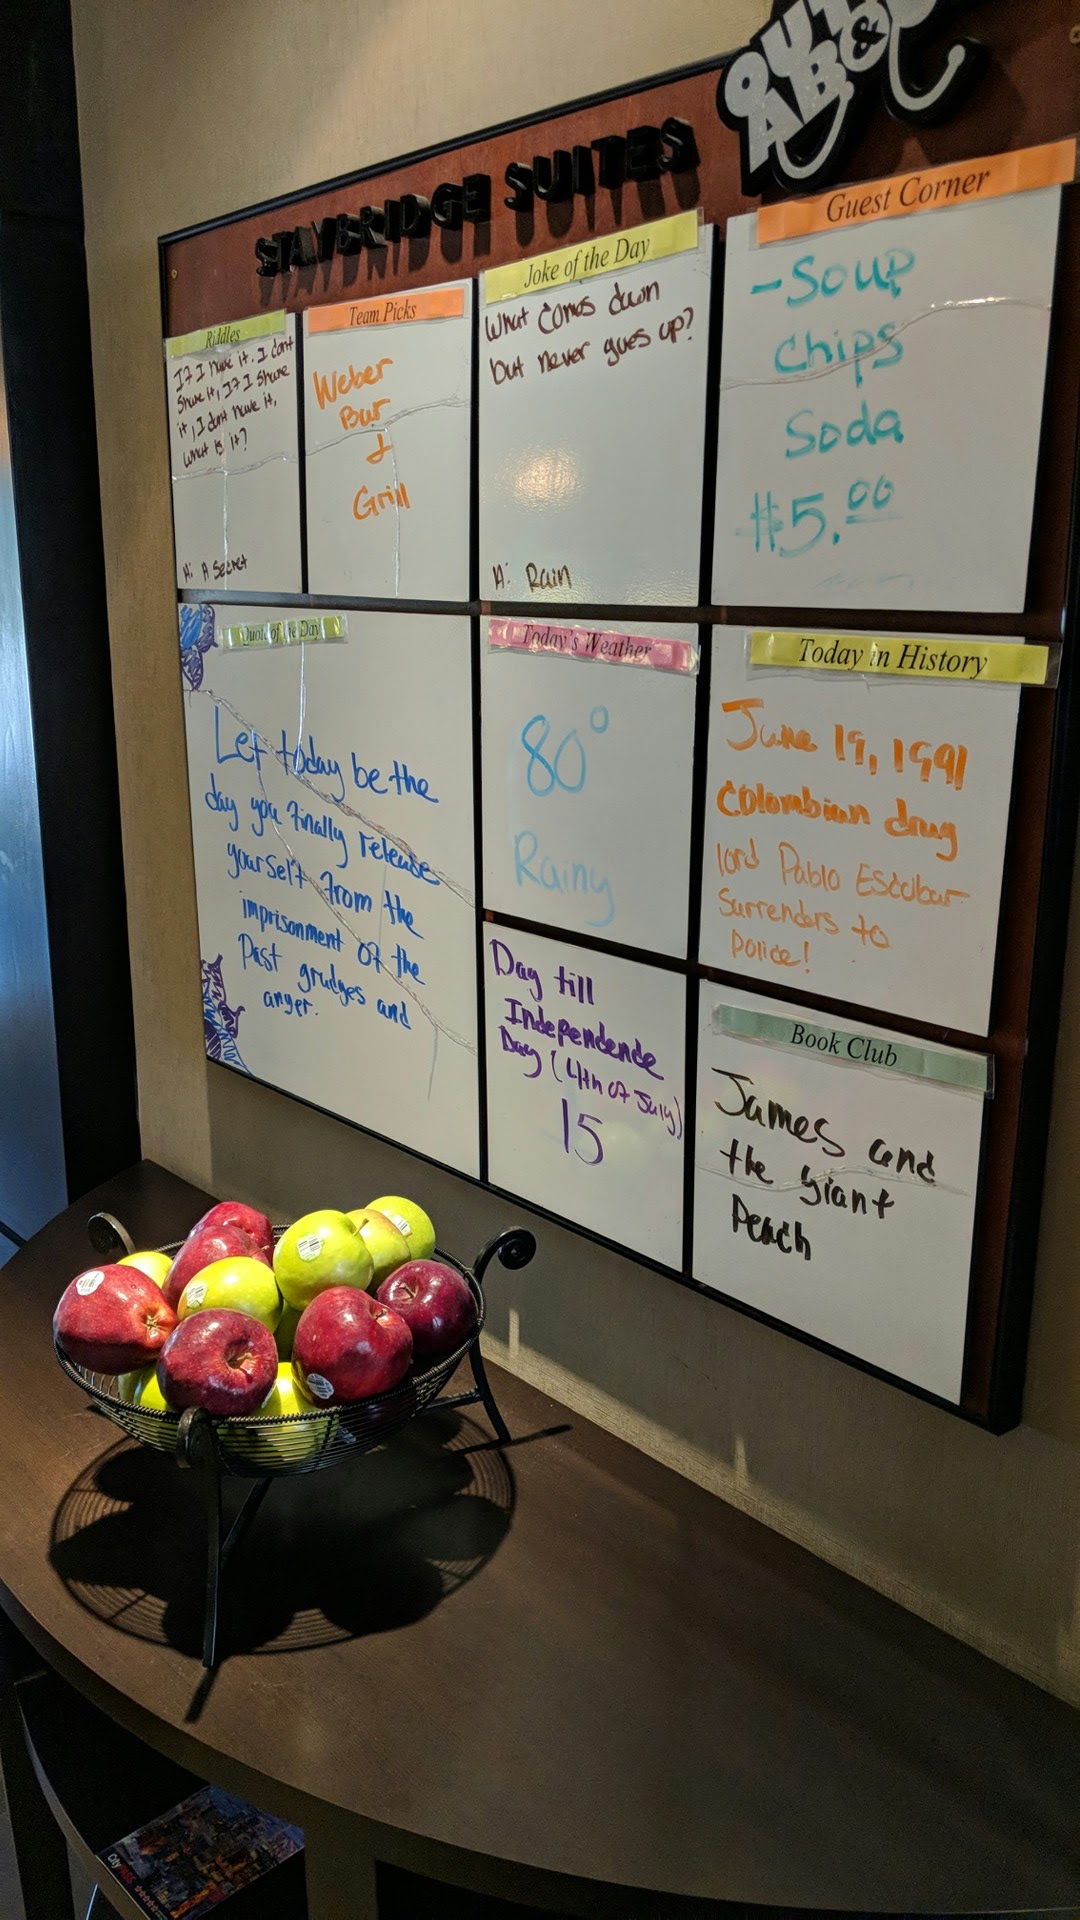 OUT &
ABOUT
STAYBRIDGE SUITES
Riddles
If I have it, I dont
Share it, If I share
it, I dont have it,
what is it?
A: A Secret
Team Picks
Weber
Bar
&
Grill
Joke of the Day
What comes down
but never goes up?
A: Rain
Guest Corner
-Soup
Chips
Soda
$5.00
Quote of the Day
Let today be the
day you finally release
yourself from the
imprisonment of the
Past grudges and
anger.
Today's Weather
80°
Rainy
Today in History
June 19, 1991
Colombian drug
lord Pablo Escobar
Surrenders to
Police!
Day till
Independence
Day (4th of July)
15
Book Club
James and
the giant
Peach
CityPASS